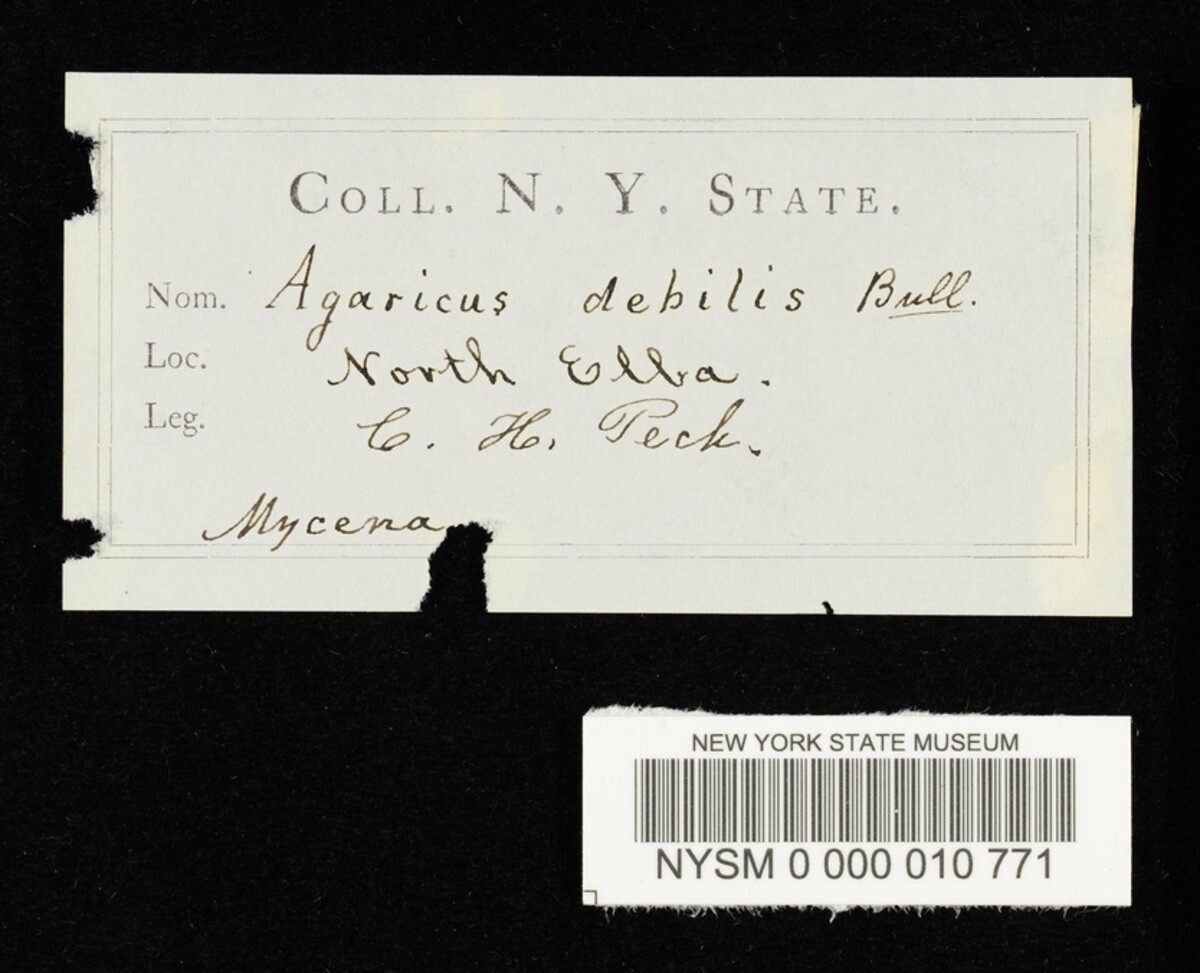 COLL. N. Y. STATE.
Nom. Agaricus debilis Bull.
Loc. North Elba.
Leg. C. H. Peck.
Mycena
NEW YORK STATE MUSEUM
NYSM 0 000 010 771